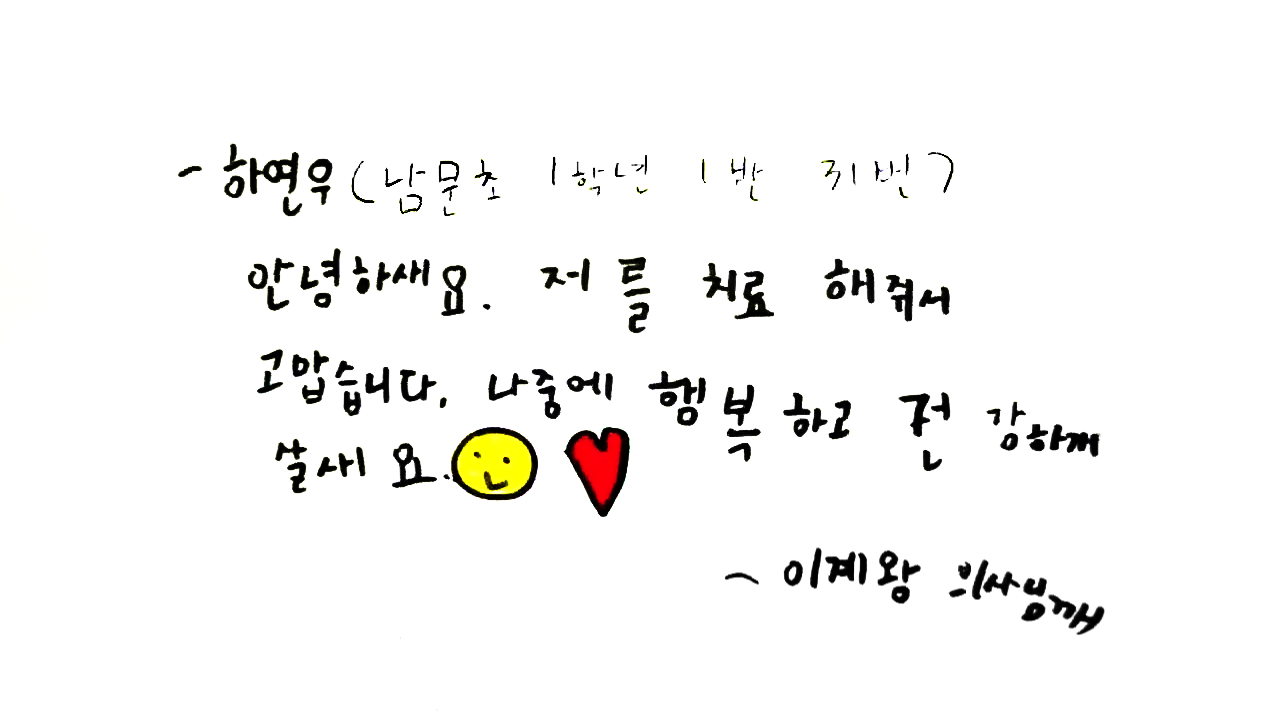 - 하연우 (남문초 1학년 1반 31번)
안녕하새요. 저를 치료 해줘서
고맙습니다. 나중에 행복하고 건강하깨
살새요.
~ 이계왕 의사님깨